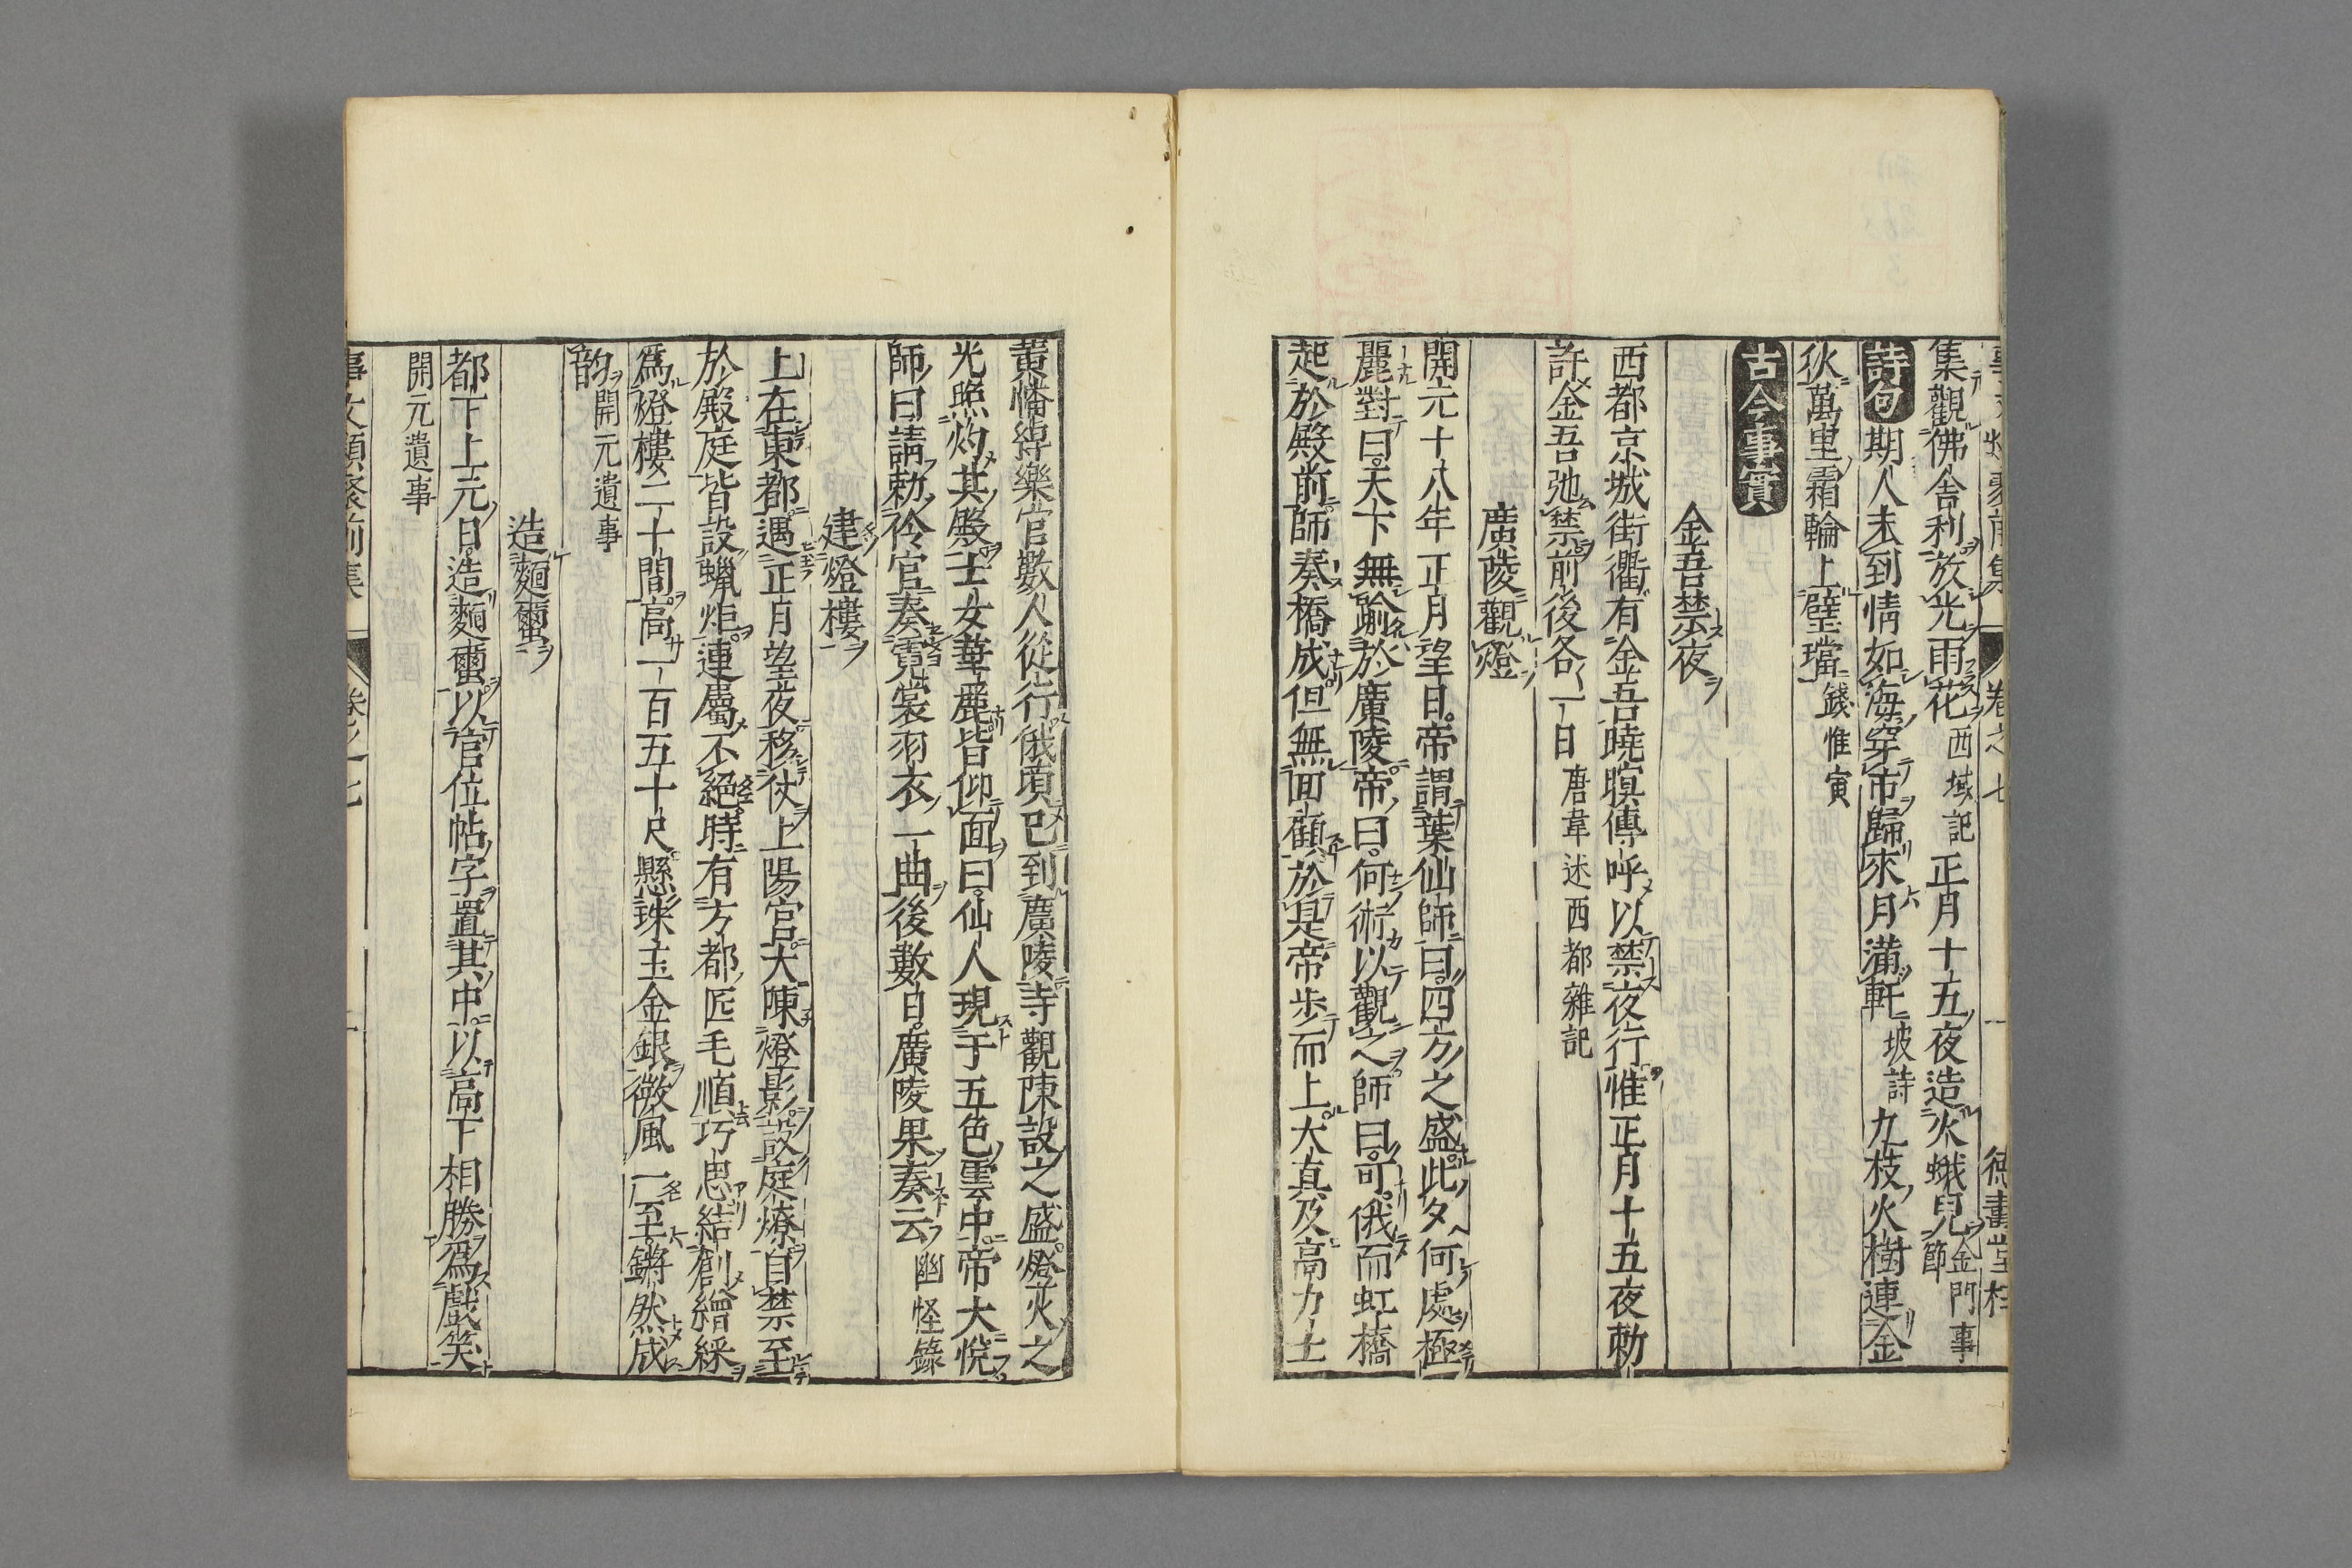 卷之七
集觀佛舍利放光雨花西域記正月十五夜造火蛾兒金門事節
詩句期人未到情如海穿市歸來月滿軒坡詩九枝火樹連金
伙萬里霜輪上璧璫錢惟寅
古今事實
金吾禁夜
西都京城街衢有金吾曉暝傳呼以禁夜行惟正月十五夜勅
許金吾弛禁前後各一日唐韋述西都雜記
廣陵觀燈
開元十八年正月望日帝謂葉仙師曰四方之盛此夕何處極
麗對曰天下無踰於廣陵帝曰何術以觀之師曰可俄而虹橋
起於殿前師奏橋成但無回顧於是帝步而上大真及高力士
黃幡綽樂官數人從行俄頃已到廣陵寺觀陳設之盛燈火之
光照灼其殿士女華麗皆仰面曰仙人現于五色雲中帝大悅
師曰請勅伶官奏霓裳羽衣一曲後數日廣陵果奏云幽怪錄
建燈樓
上在東都遇正月望夜移仗上陽宮大陳燈影設庭燎自禁至
於殿庭皆設蠟炬連屬不絕時有方都匠毛順巧思結創繒綵
爲燈樓二十間高一百五十尺懸珠玉金銀微風一至鏘然成
韵開元遺事
造麵䘎
都下上元日造麵䘎以官位帖字置其中以高下相勝爲戲笑
開元遺事
事文類聚前集 卷之七